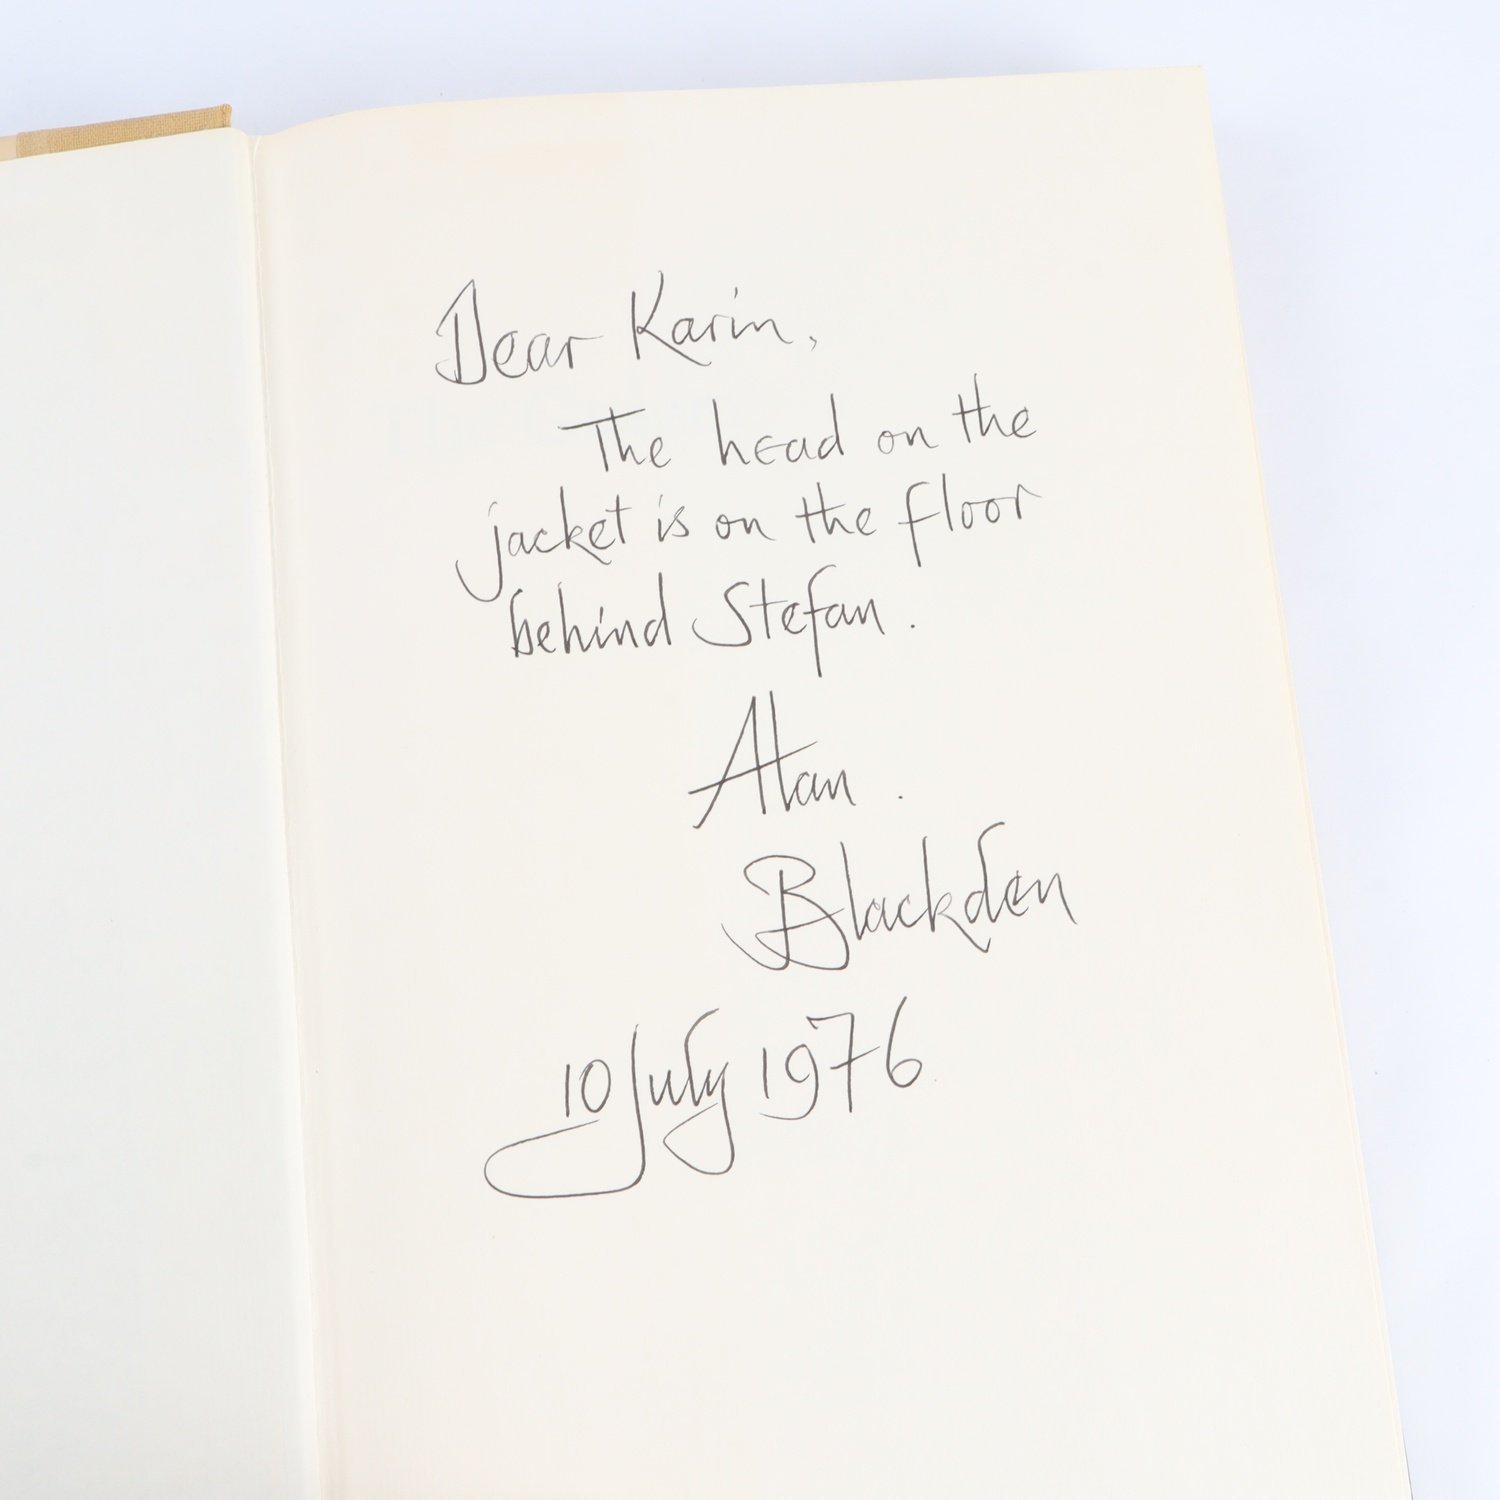 Dear Karin,
The head on the
jacket is on the floor
behind Stefan.
Alan.
Blackden
10 July 1976